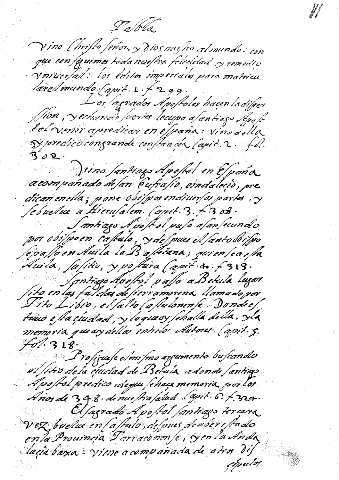 Tabla
vino Christo señor, y Dios nuestro al mundo: con
que conseguimos toda nuestra felicidad, y remedio
universal: los editos imperiales para matricu
lar el mundo. Capit. 1. f 299.
Los sagrados Apostoles hacen la disper
sion, y echando suertes le cupo a santiago Apos
tol venir a predicar en españa: vino a ella
y predico con grande constancia Capit. 2. fol.
302.
Vino santiago Apostol en España
acompañado de san Eufrasio, indalecio, pre
dican en ella, pone obispos en diversas partes, y
se vuelve a Hierusalem. Capit. 3. f 308.
Santiago Apostol puso a san secundo
por obispo en castulo, y despues el santo obispo
se passo en Auila la Bastetana; que no en esta
Auila, su sitio, y postura Capit 4. f 313.
Santiago Apostol passo a Betula lugar
sito en las faldas de sierramorena llamado, por
Tito Livio, el salto castulonense. Donde es
tuvo esta ciudad, y lo que oy se halla de ella, y la
memoria que ay della en otros Autores. Capit. 5.
fol. 318.
Prosiguese el mismo argumento buscando
el sitio de la ciudad de Betula, a donde santiago
Apostol predico de que se haze memoria por los
Años de 348. de nuestra salud Capit. 6. f 324
El sagrado Apostol santiago tercera
vez, buelve en castulo, despues de aver estado
en la Provincia Tarraconense, y en la Anda
lucia baxa: viene acompañado de otros dis
cipulos